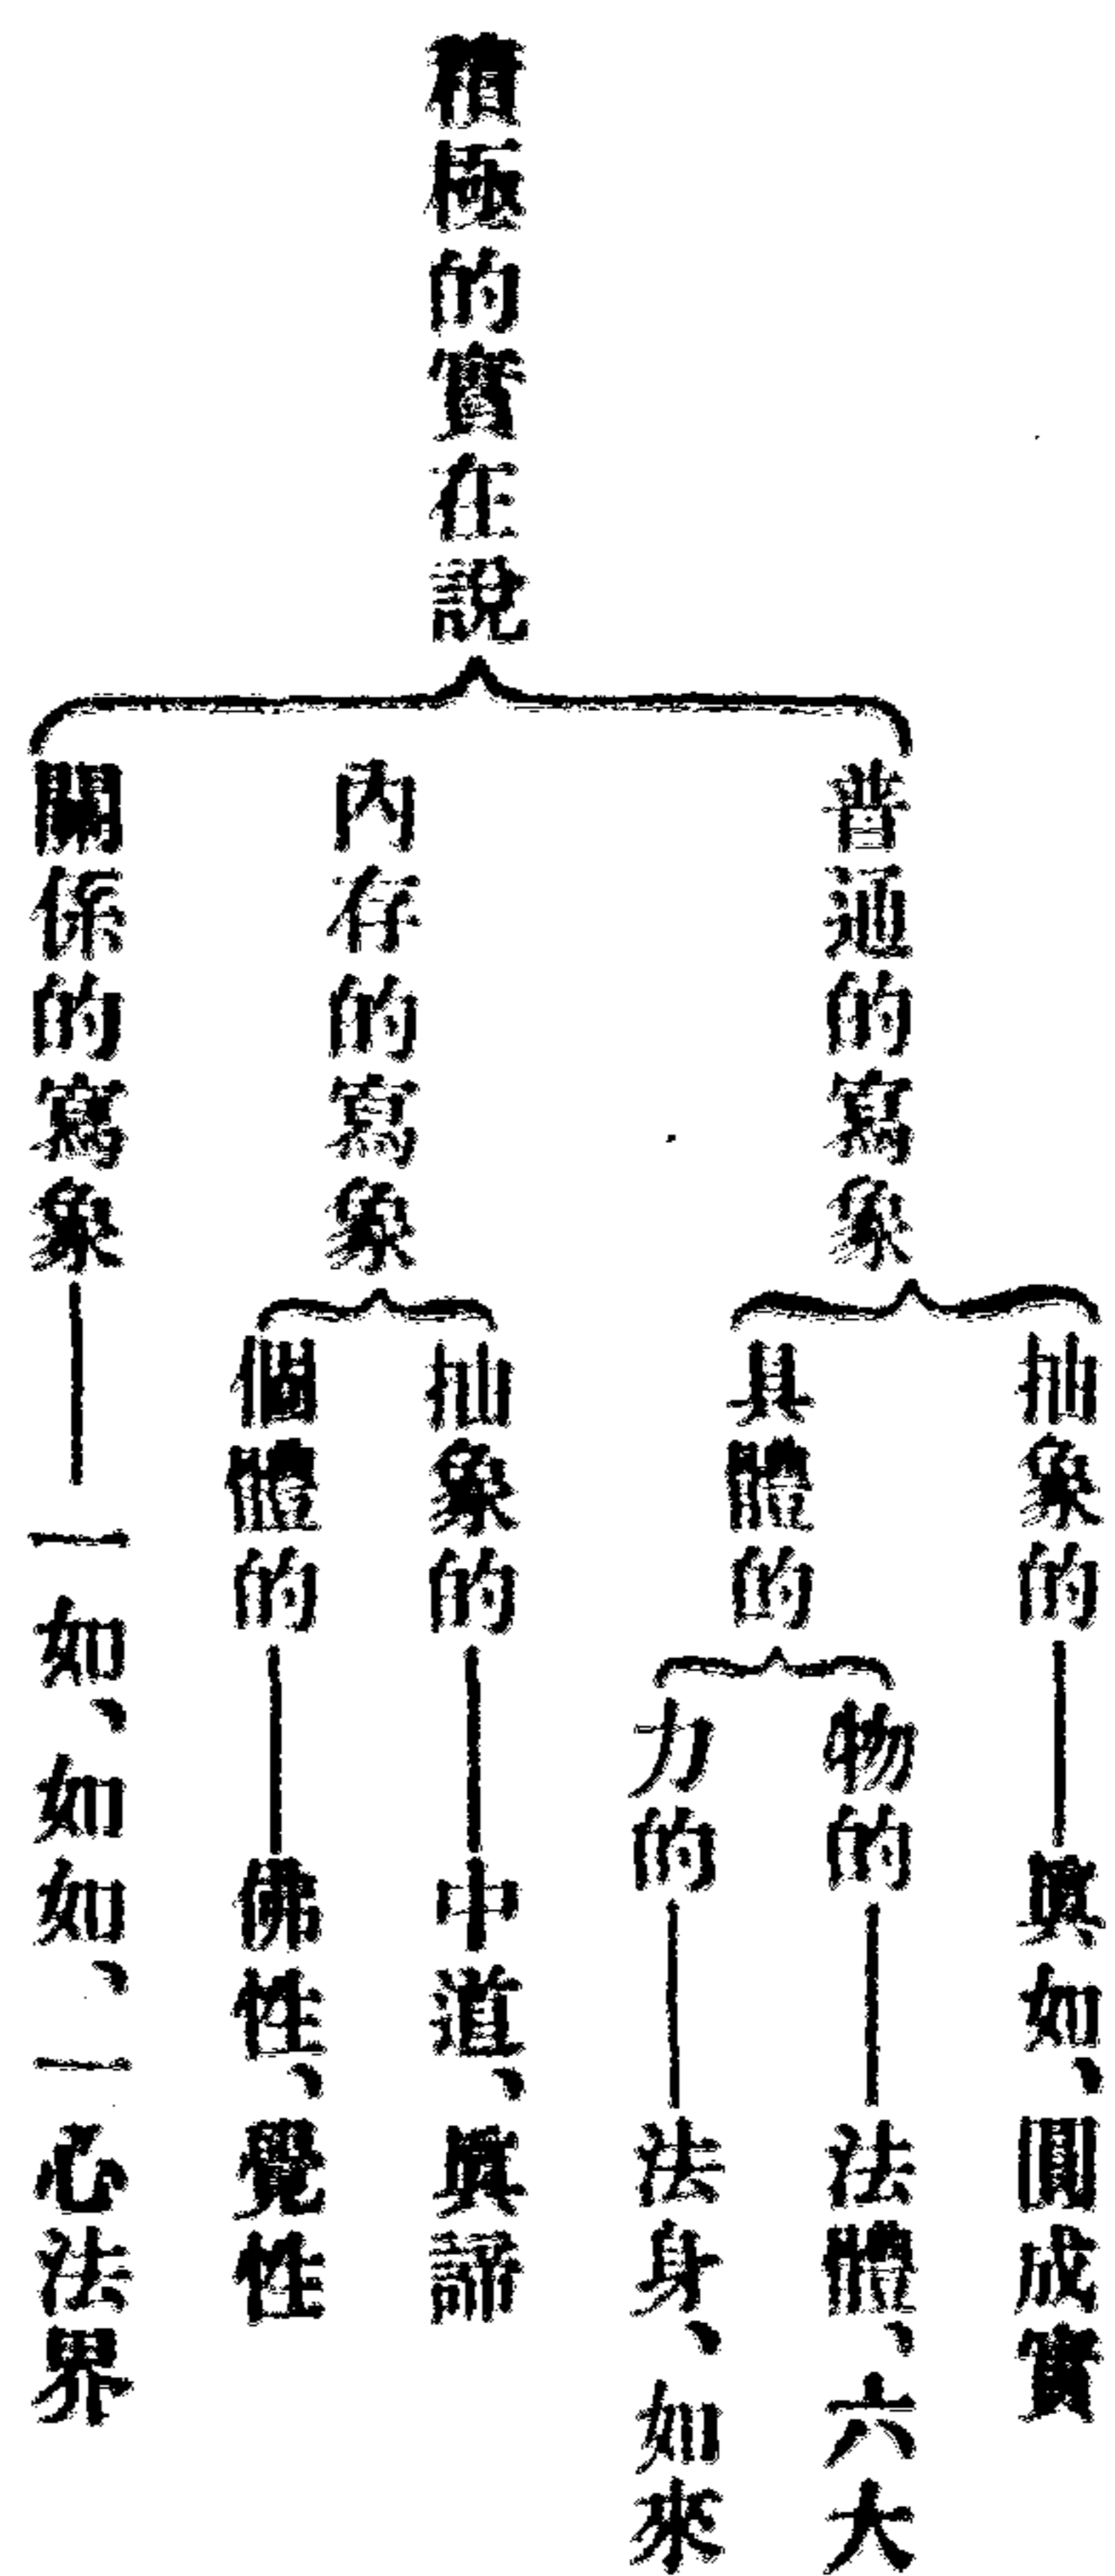 積極的實在說
普通的寫象
抽象的
眞如、圓成實
具體的
物的
法體、六大
力的
法身、如來
內存的寫象
抽象的
中道、眞諦
個體的
佛性、覺性
關係的寫象
一如、如如、一心法界